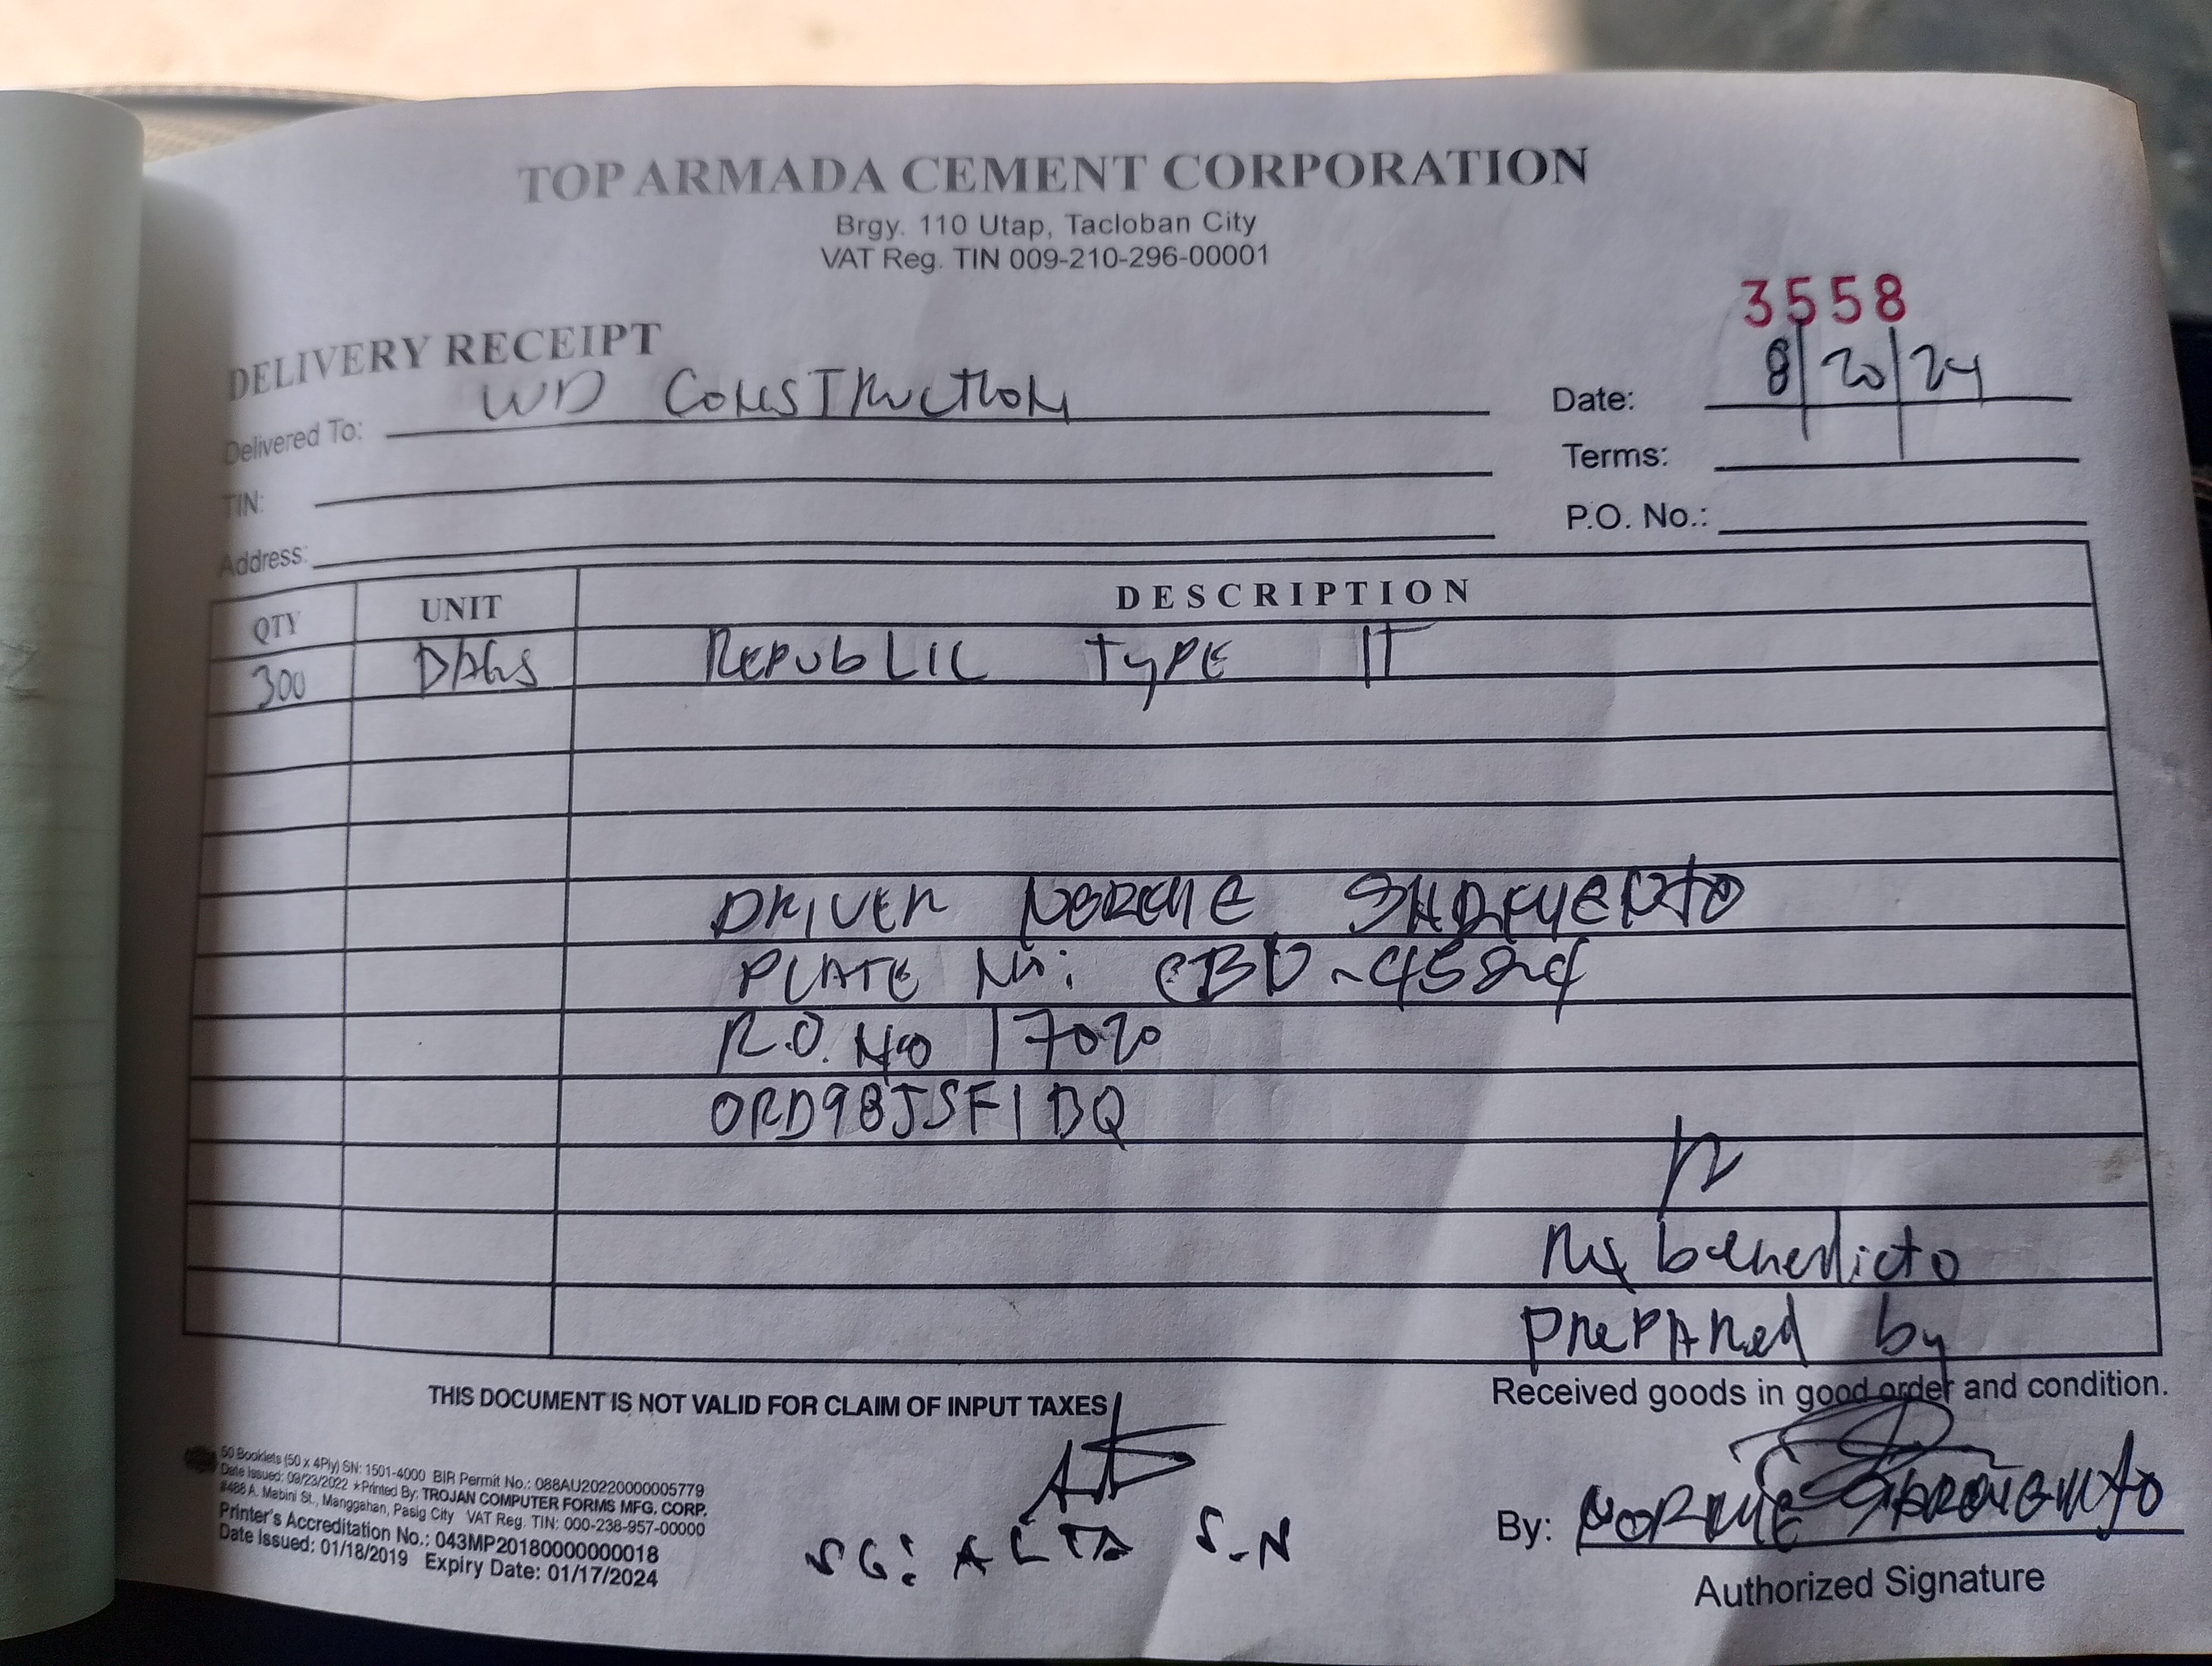 TOP ARMADA CEMENT CORPORATION
Brgy. 110 Utap, Tacloban City
VAT Reg. TIN 009-210-296-00001
3558
DELIVERY RECEIPT
Delivered To: WD CONSTRUCTION
Date: 8/20/24
TIN:
Terms:
Address:
P.O. No.:
QTY UNIT DESCRIPTION
300 BAGS REPUBLIC TYPE IT
DRIVER NORME SARMENTO
PLATE No: CBU-4584
R.O. No 17020
ORD98JSF1BQ
benedicto
PREPARED by
THIS DOCUMENT IS NOT VALID FOR CLAIM OF INPUT TAXES
Received goods in good order and condition.
50 Booklets (50 x 4Ply) SN: 1501-4000 BIR Permit No.: 088AU20220000005779
Date Issued: 09/23/2022 ★Printed By: TROJAN COMPUTER FORMS MFG. CORP.
#488 A. Mabini St., Manggahan, Pasig City VAT Reg. TIN: 000-238-957-00000
Printer's Accreditation No.: 043MP20180000000018
Date Issued: 01/18/2019 Expiry Date: 01/17/2024
SG: ALTA S-N
By: NORME SARMENTO
Authorized Signature